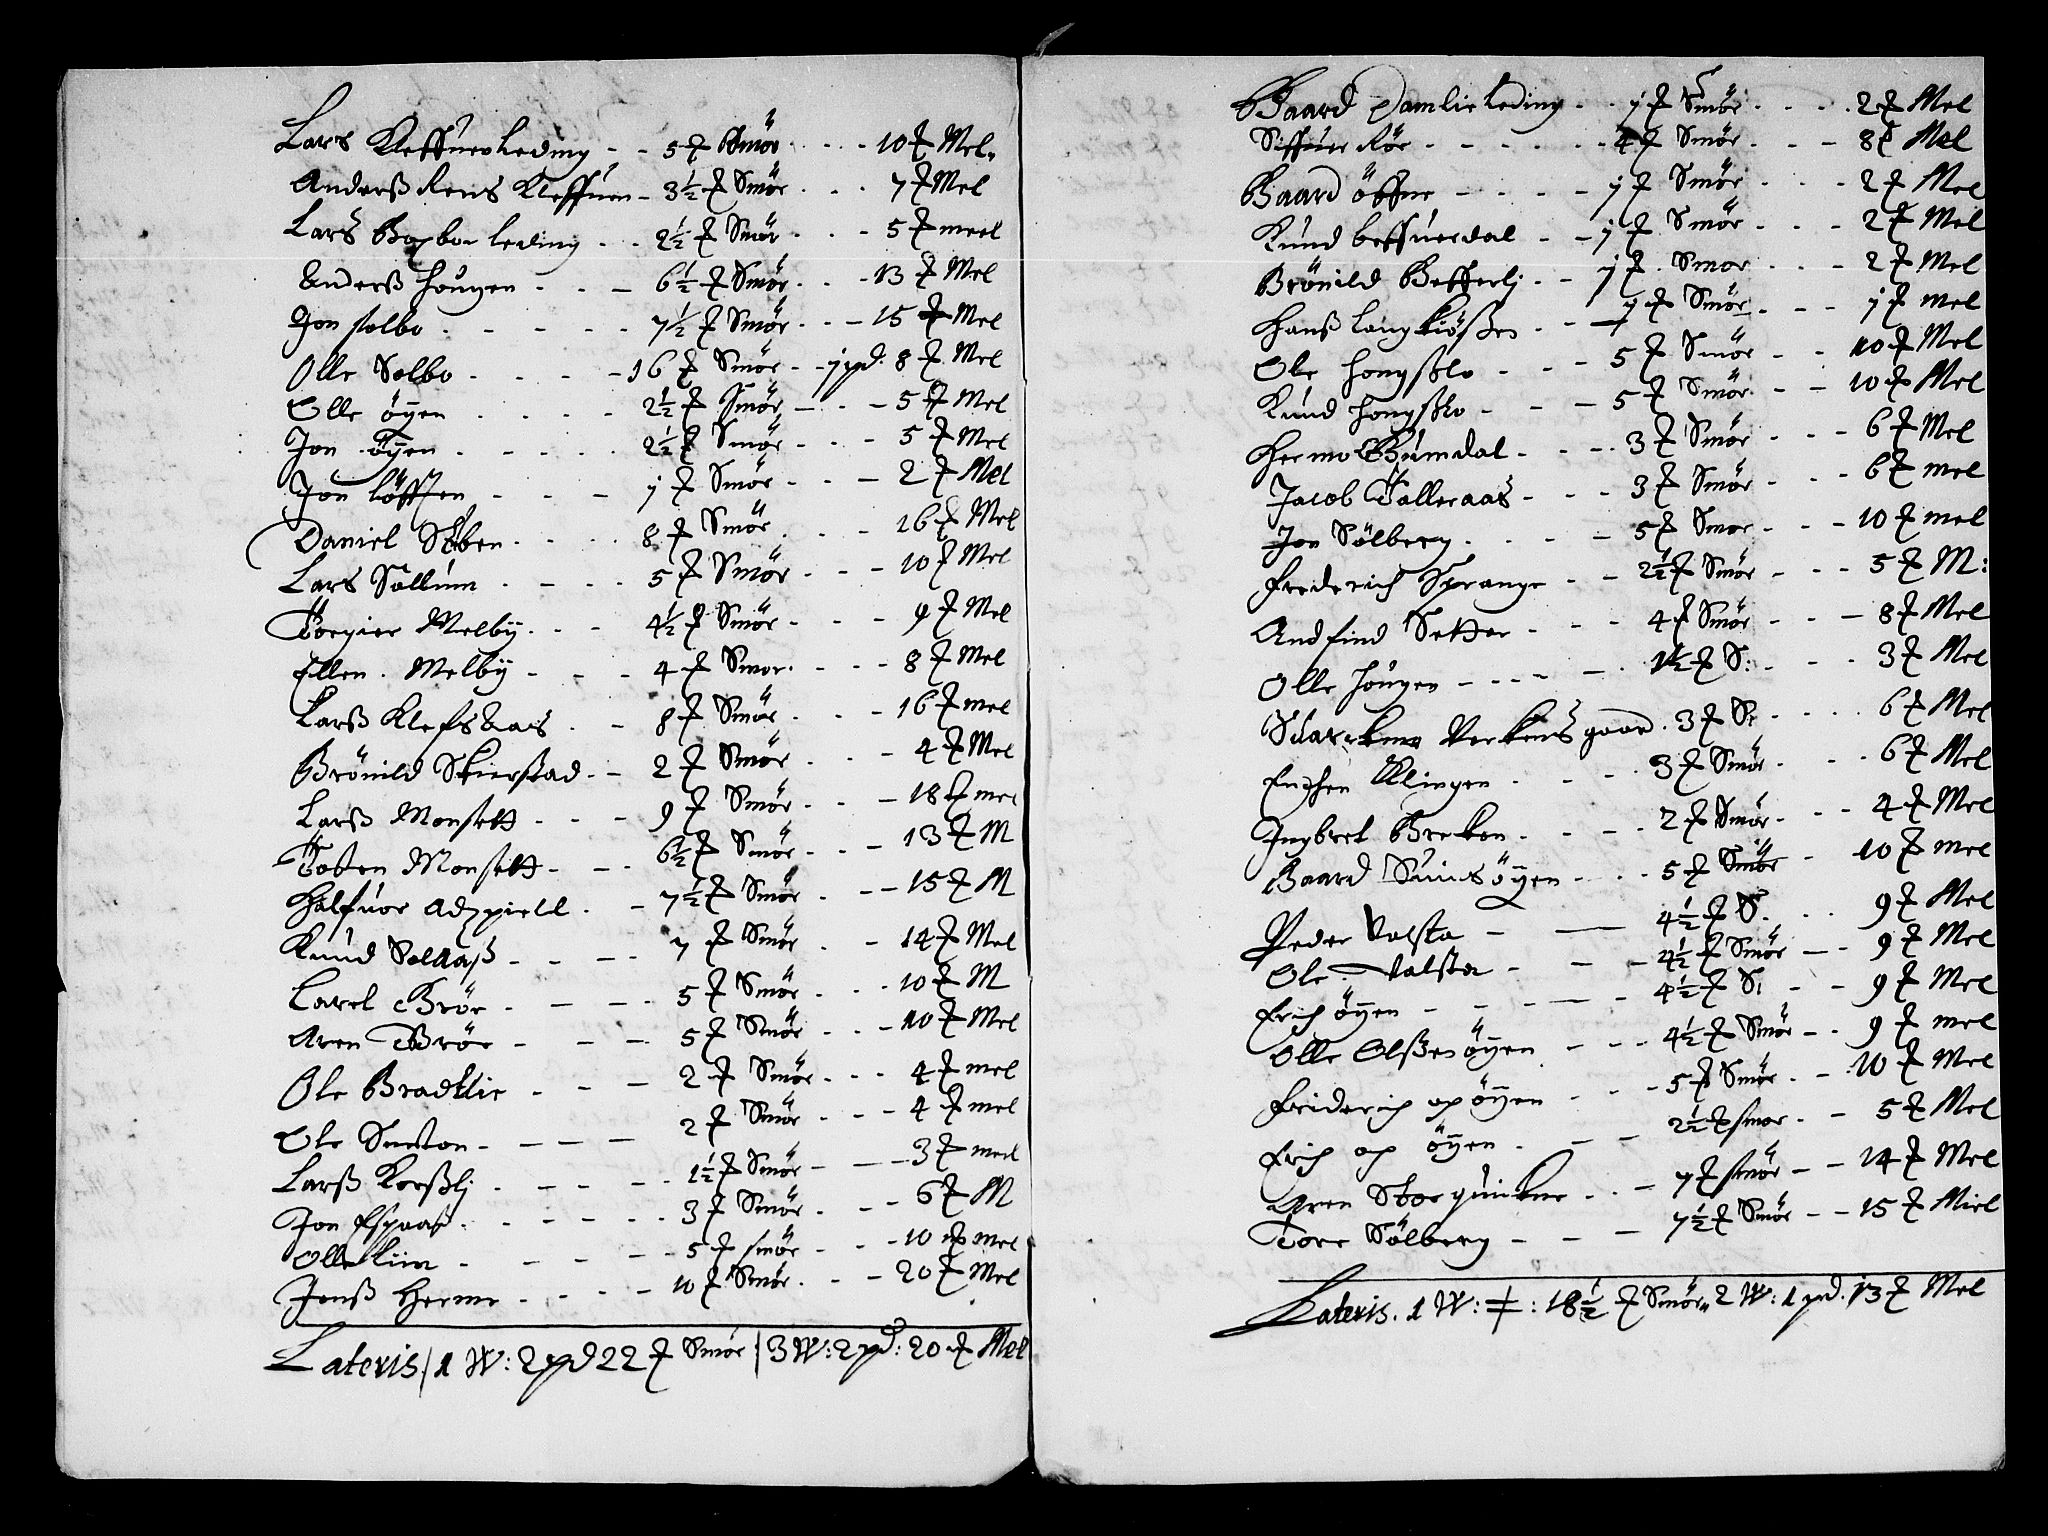 Lars Kleffuen leding - - 5 ℔ Smör . . . . 10 ℔ Mel.
Anderß Rens Kleffuen - 3½ ℔ Smör . . . 7 ℔ Mel
Lars leding . . 2½ ℔ Smör . . . 5 ℔ meel
Anderß Hougen . . . - 6½ ℔ Smör . . . 13 ℔ Mel
Jon solbo . - - - - 7½ ℔ Smör . . . - 15 ℔ Mel
Olle Solbo . - - - 16 ℔ Smör - - j pd. 8 ℔ Mel
Olle öyen . . . . . 2½ ℔ Smör - . . - 5 ℔ Mel
Jon öyen . - - - - 2½ ℔ Smör . . . . 5 ℔ Mel
Jon löfften - - - j ℔ Smör . . . - 2 ℔ Mel
Daniel Stöben . . . . 8 ℔ Smör . . . . 16 ℔ Mel
Lars Sollum . - - - . 5 ℔ Smör . . . 10 ℔ Mel
Torgier Melbÿ . . . 4½ ℔ Smör . . . . 9 ℔ Mel
Ellen . Melbÿ - . . . 4 ℔ Smor . . . . 8 ℔ Mel
Larß Klefsaas . - 8 ℔ Smör . . . - 16 ℔ mel
Brönild Skierstad - - 2 ℔ Smör . . . - 4 ℔ Mel
Larß Monsett . . . 9 ℔ Smör . . . - 18 ℔ mel
Toben Monsett - . - . 6½ ℔ Smör . . - 13 ℔ M
Halfuor . - 7½ ℔ Smör . . - 15 ℔ M
Knud Solaaß . - - - 7 ℔ Smör . - 14 ℔ Mel
Larel Brör . - - - 5 ℔ Smör . . . . 10 ℔ M
Aren Brör - - - 5 ℔ Smör . . - 10 ℔ Mel
Ole Bradtlie . - - 2 ℔ Smör . . . 4 ℔ mel
Ole Smeton - - - - 2 ℔ Smör . . - 4 ℔ mel
Larß Korßlj . - - - . 1½ ℔ Smör - - - 3 ℔ mel
Jon Espaaß . . - - - . 3 ℔ Smör . . - 6 ℔ M
Olle kiin . - - - - 5 ℔ smör . . - 10 ℔ mel
Jenß Herme . . . - 10 ℔ Smör . . - 20 ℔ Mel
Lateris / 1 W: 2 pd 22 ℔ Smör / 3 W: 2 pd: 20 ℔ Mel
Baard Damlie leding . . j ℔ Smör . . . . 2 ℔ Mel
Siffuer Rör - - - - . . 4 ℔ Smör . . - 8 ℔ Mel
Baard öffne - - - - j ℔ Smör . . . 2 ℔ Mel
Knud beffuerdal - - j ℔ Smör . . - 2 ℔ Mel
Brönild Befferlj . - j ℔ Smor . . . 2 ℔ Mel
Hanß - - ℔ Smör . . - j ℔ mel
Ole Hongßlo . . - - 5 ℔ Smör - . 10 ℔ Mel
Knud Hongßlo - - - 5 ℔ Smör . - - 10 ℔ Mel
Hermo Gumdal - . - . 3 ℔ Smör . . . - 6 ℔ Mel
Jacob Tolleraas - . . . 3 ℔ Smör . . . 6 ℔ mel
Jon Sölberg . . - - 5 ℔ Smor - . . - 10 ℔ mel
Frederich Sprange . - 2½ ℔ Smör - . . . 5 ℔ M:
Andfind Setter . - . . 4 ℔ Smör . - - 8 ℔ Mel
Olle Hougen - - - - . - . 1½ ℔ S: . . . 3 ℔ Mel
Verkensgaard . 3 ℔ S: . . . . 6 ℔ Mel
Klingen . . - - . 3 ℔ Smör . . . . 6 ℔ Mel
Ingbret Brekon . . - - 2 ℔ Smör . . - 4 ℔ Mel
Baard Suinsöyen . . . 5 ℔ Smör . 10 ℔ mel
Peder Valsta - - 4½ ℔ S. . . . 9 ℔ Mel
Ole . Valsta - - - 4½ ℔ Smör - - 9 ℔ Mel
Erich öyen - - - - - 4½ ℔ S: . - 9 ℔ Mel
Olle Olßen öyen . . - 4½ ℔ Smör - . 9 ℔ mel
Friderich op öyen . . . . 5 ℔ Smör . . 10 ℔ Mel
Erich op öyen . - - 2½ ℔ smor . . - 5 ℔ Mel
Aren Storquinkne . . . 7 ℔ smör - - 14 ℔ Mel
Tore Sölberg - - - 7½ ℔ Smör - - 15 ℔ Miel
Lateris . 1 W: ≠ : 18½ ℔ Smör,, 2 W: 1 pd. 13 ℔ Mel